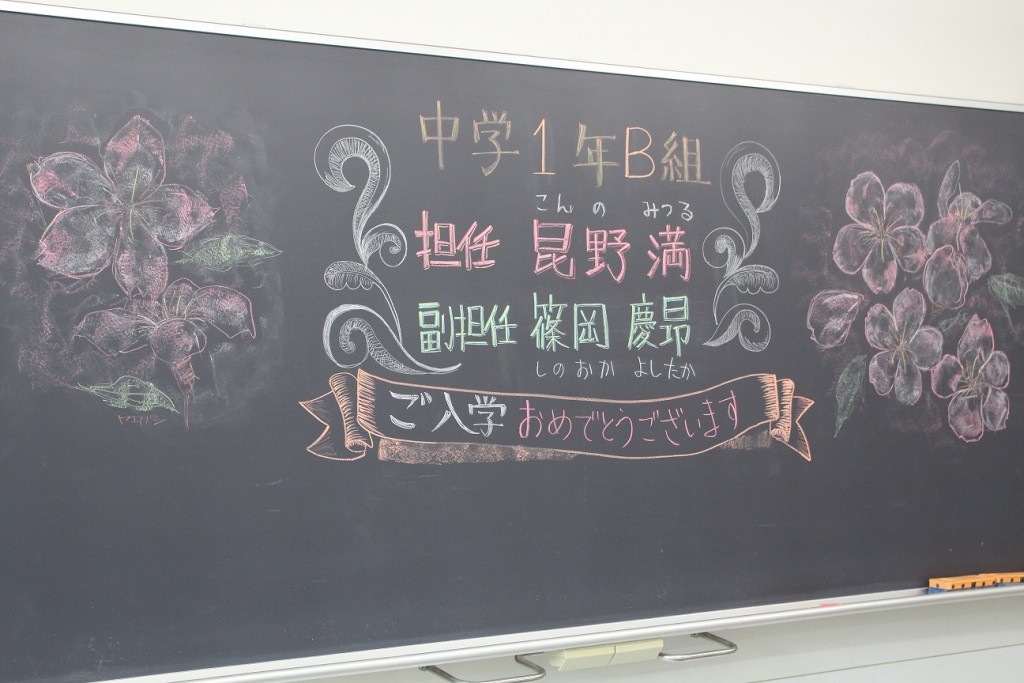 中学1年B組
こんの みつる
担任 昆野 満
副担任 篠岡 慶昻
しのおか よしたか
ご入学 おめでとうございます